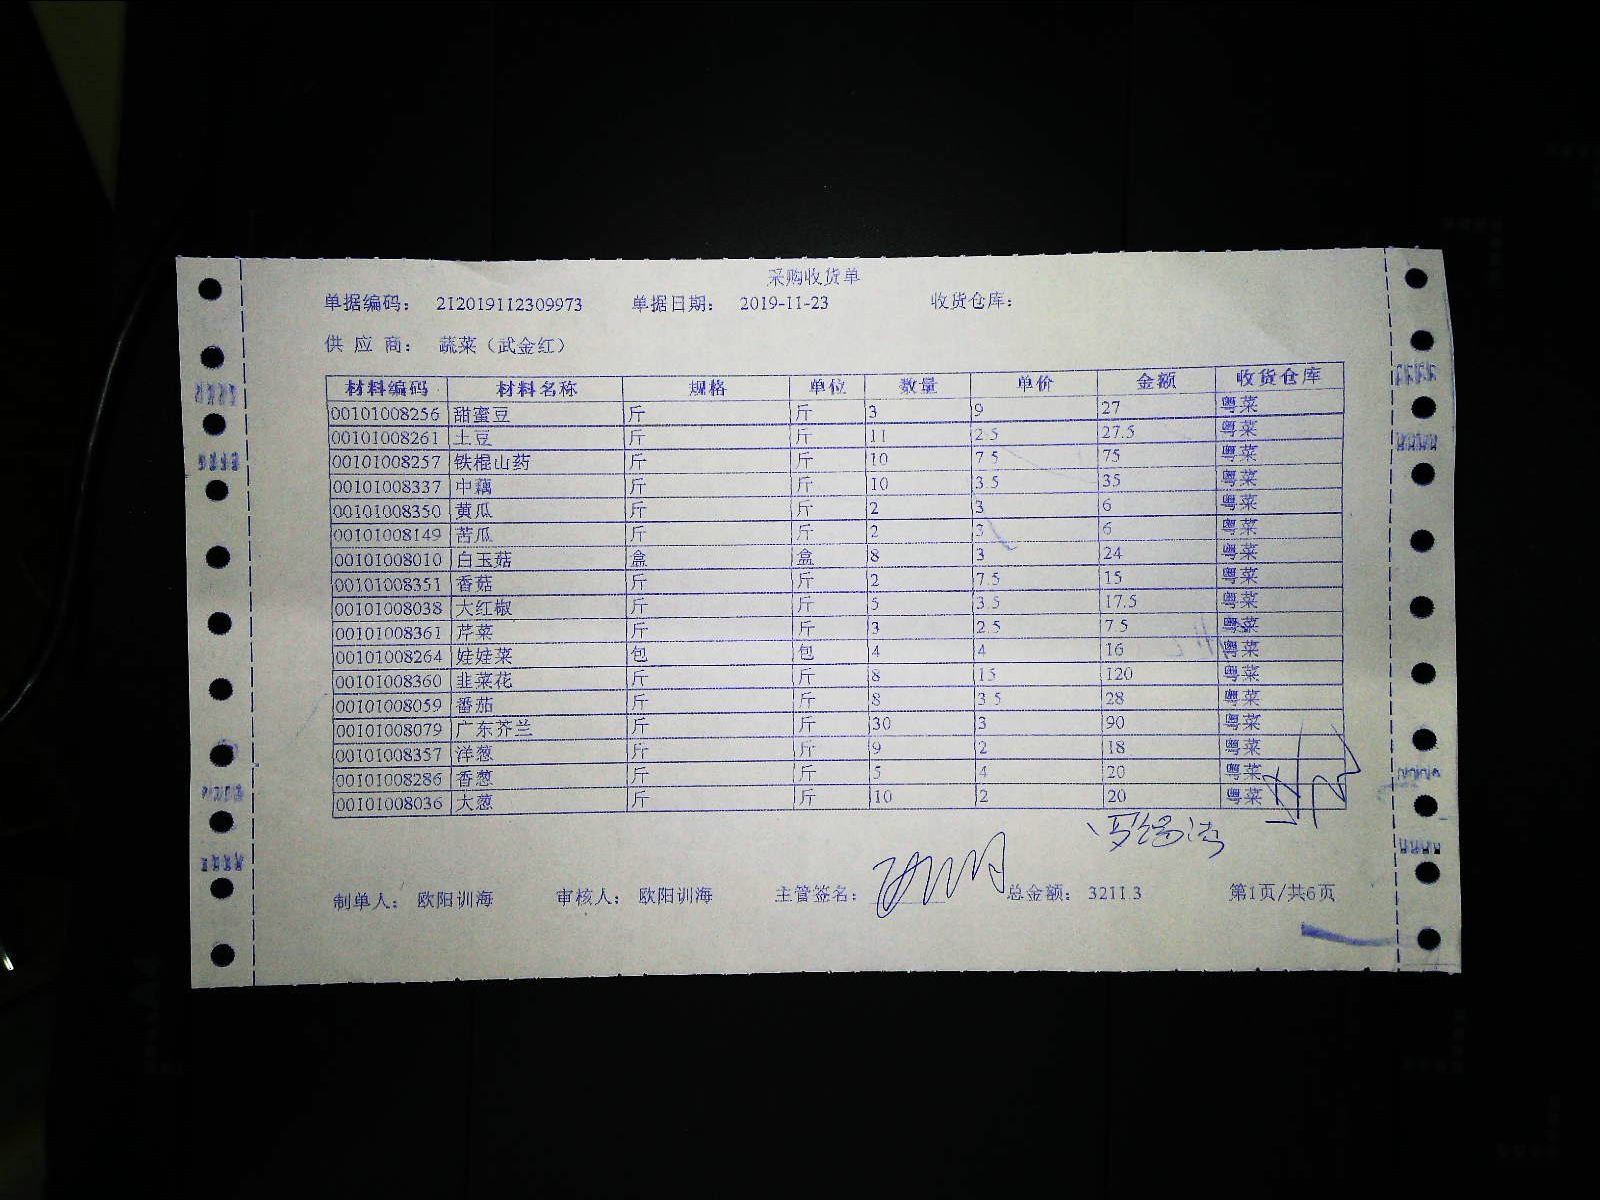 采购收货单
单据编码： 212019112309973 单据日期： 2019-11-23 收货仓库：
供 应 商： 蔬菜（武金红）
材料编码 材料名称 规格 单位 数量 单价 金额 收货仓库
00101008256 甜蜜豆 斤 斤 3 9 27 粤菜
00101008261 土豆 斤 斤 11 2.5 27.5 粤菜
00101008257 铁棍山药 斤 斤 10 7.5 75 粤菜
00101008337 中藕 斤 斤 10 3.5 35 粤菜
00101008350 黄瓜 斤 斤 2 3 6 粤菜
00101008149 苦瓜 斤 斤 2 3 6 粤菜
00101008010 白玉菇 盒 盒 8 3 24 粤菜
00101008351 香菇 斤 斤 2 7.5 15 粤菜
00101008038 大红椒 斤 斤 5 3.5 17.5 粤菜
00101008361 芹菜 斤 斤 3 2.5 7.5 粤菜
00101008264 娃娃菜 包 包 4 4 16 粤菜
00101008360 韭菜花 斤 斤 8 15 120 粤菜
00101008059 番茄 斤 斤 8 3.5 28 粤菜
00101008079 广东芥兰 斤 斤 30 3 90 粤菜
00101008357 洋葱 斤 斤 9 2 18 粤菜
00101008286 香葱 斤 斤 5 4 20 粤菜
00101008036 大葱 斤 斤 10 2 20 粤菜
制单人： 欧阳训海 审核人： 欧阳训海 主管签名： 总金额： 3211.3 第1页/共6页